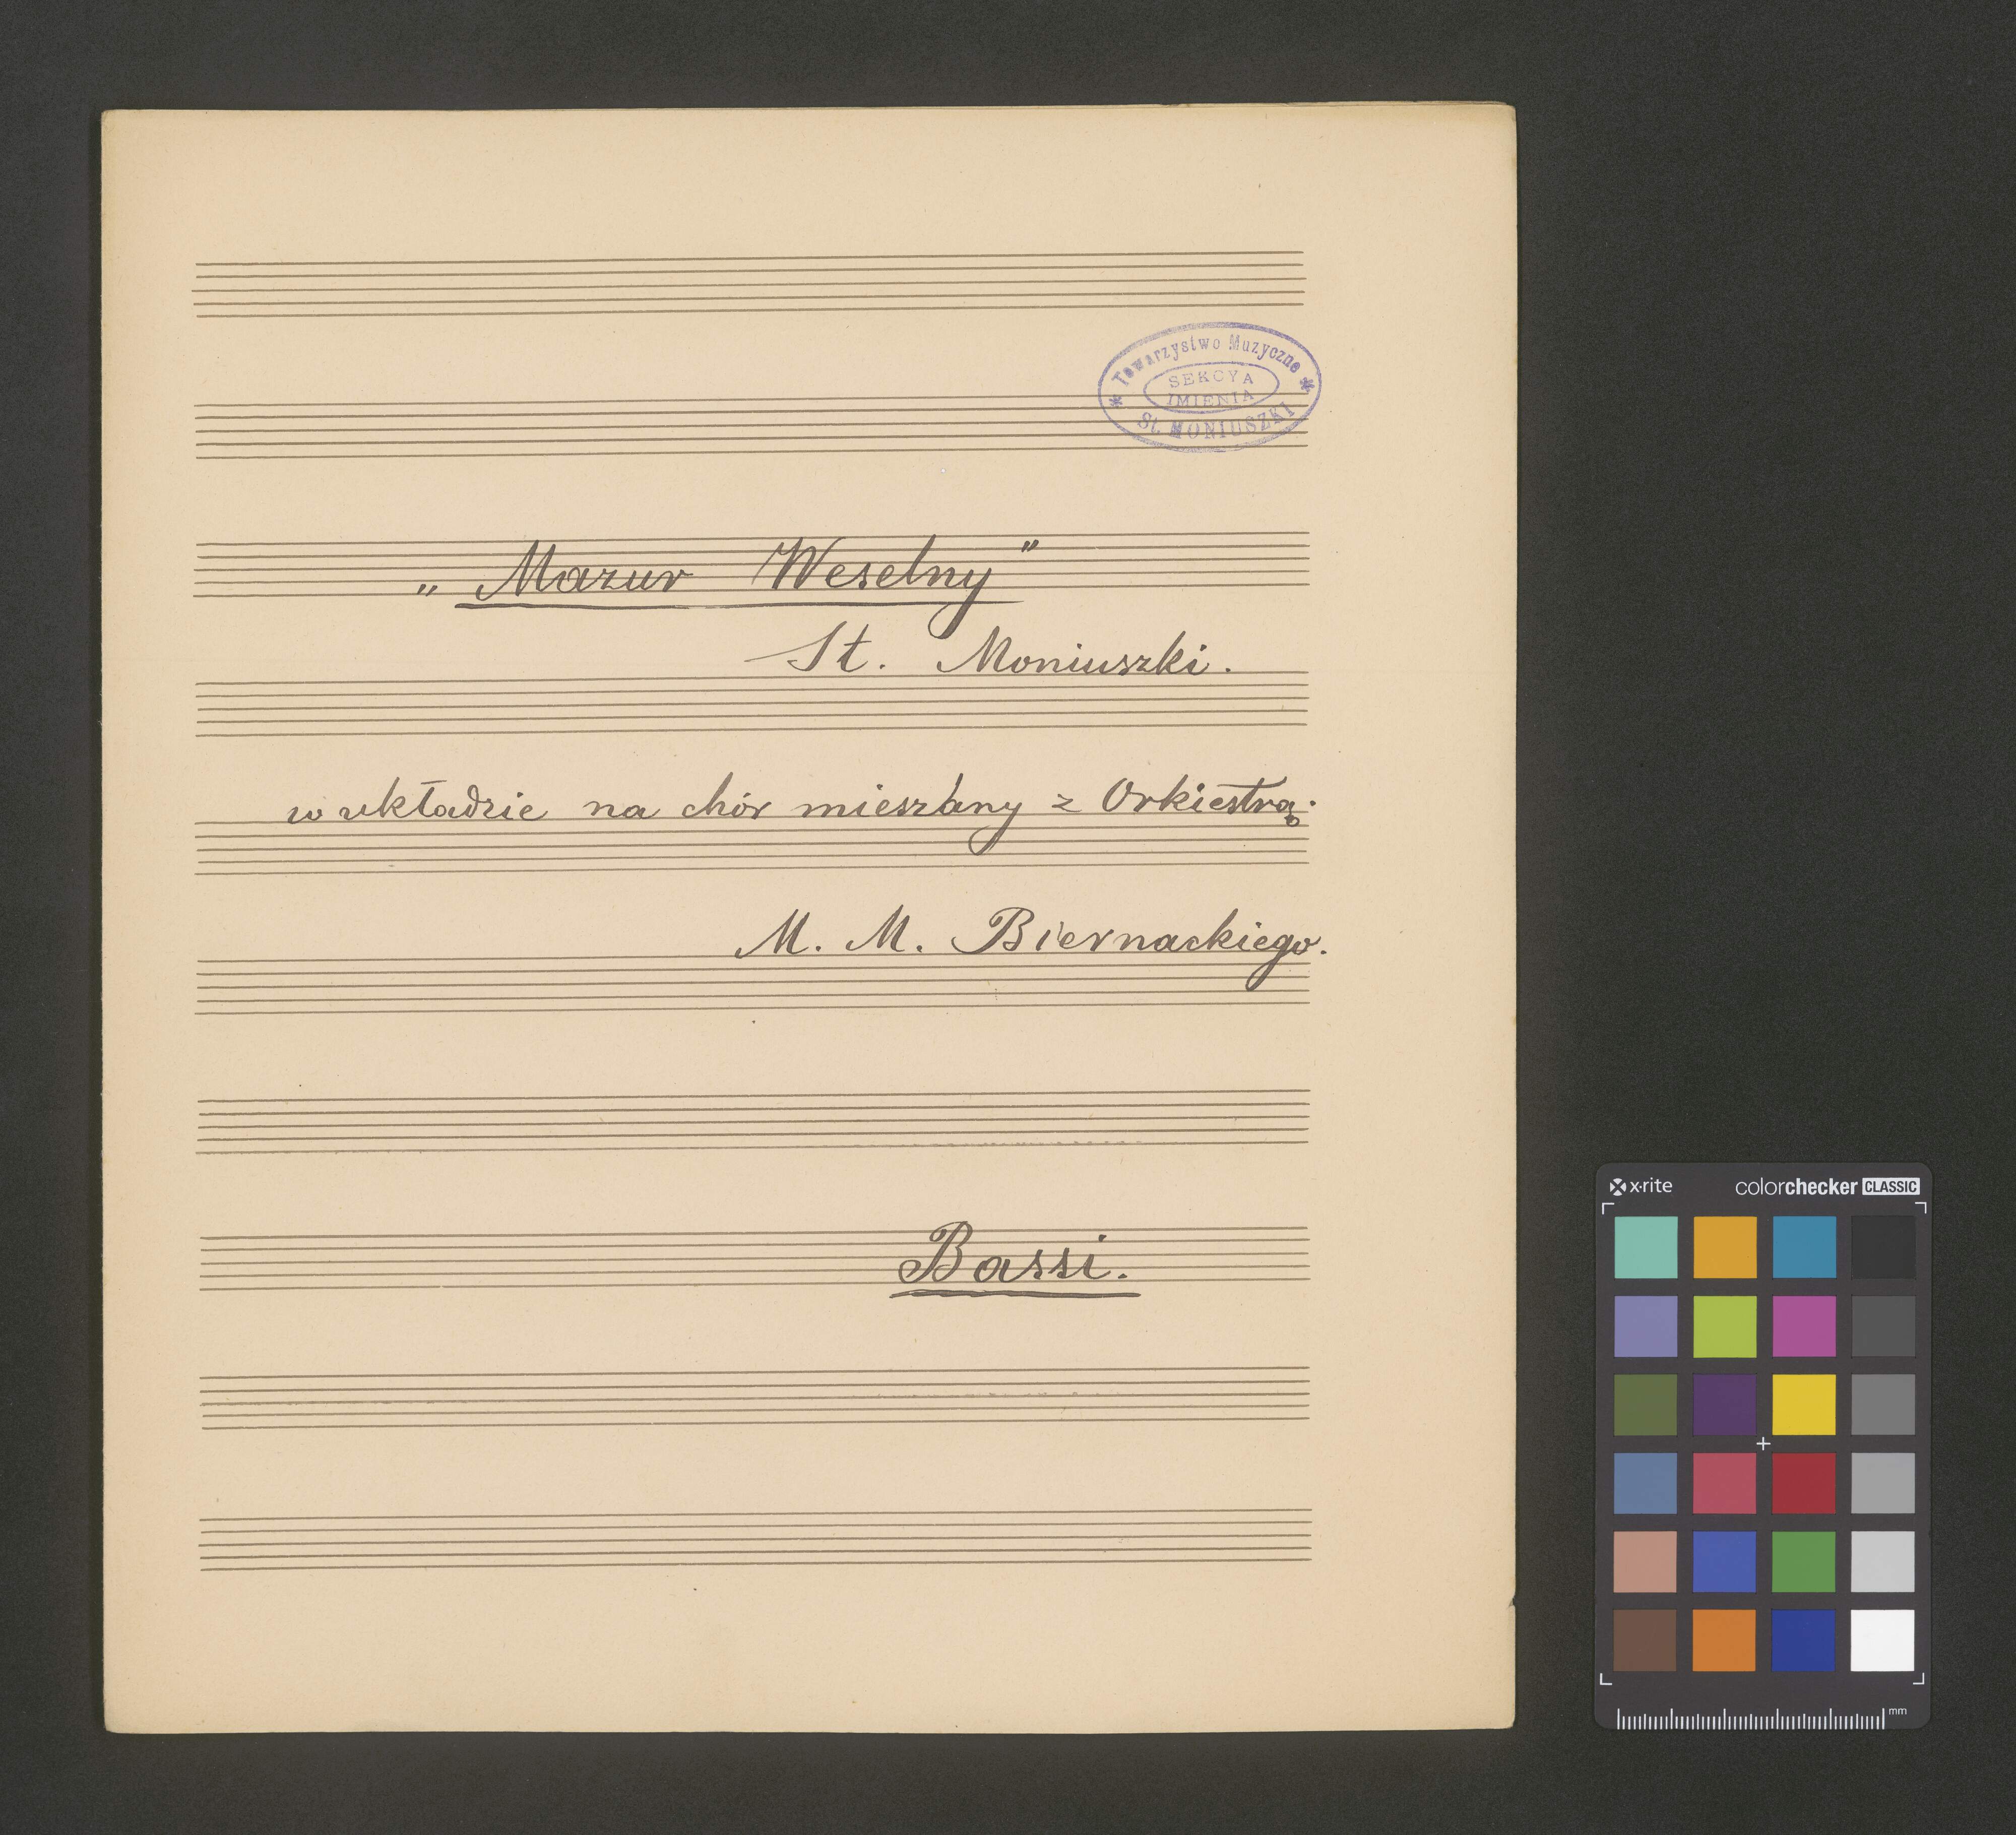 Towarzystwo Muzyczne
SEKCYA
IMIENIA
St. MONIUSZKI
„Mazur Weselny"
St. Moniuszki.
w układzie na chór mieszany z Orkiestrą.
M. M. Biernackiego.
Bassi.
x·rite colorchecker CLASSIC
mm